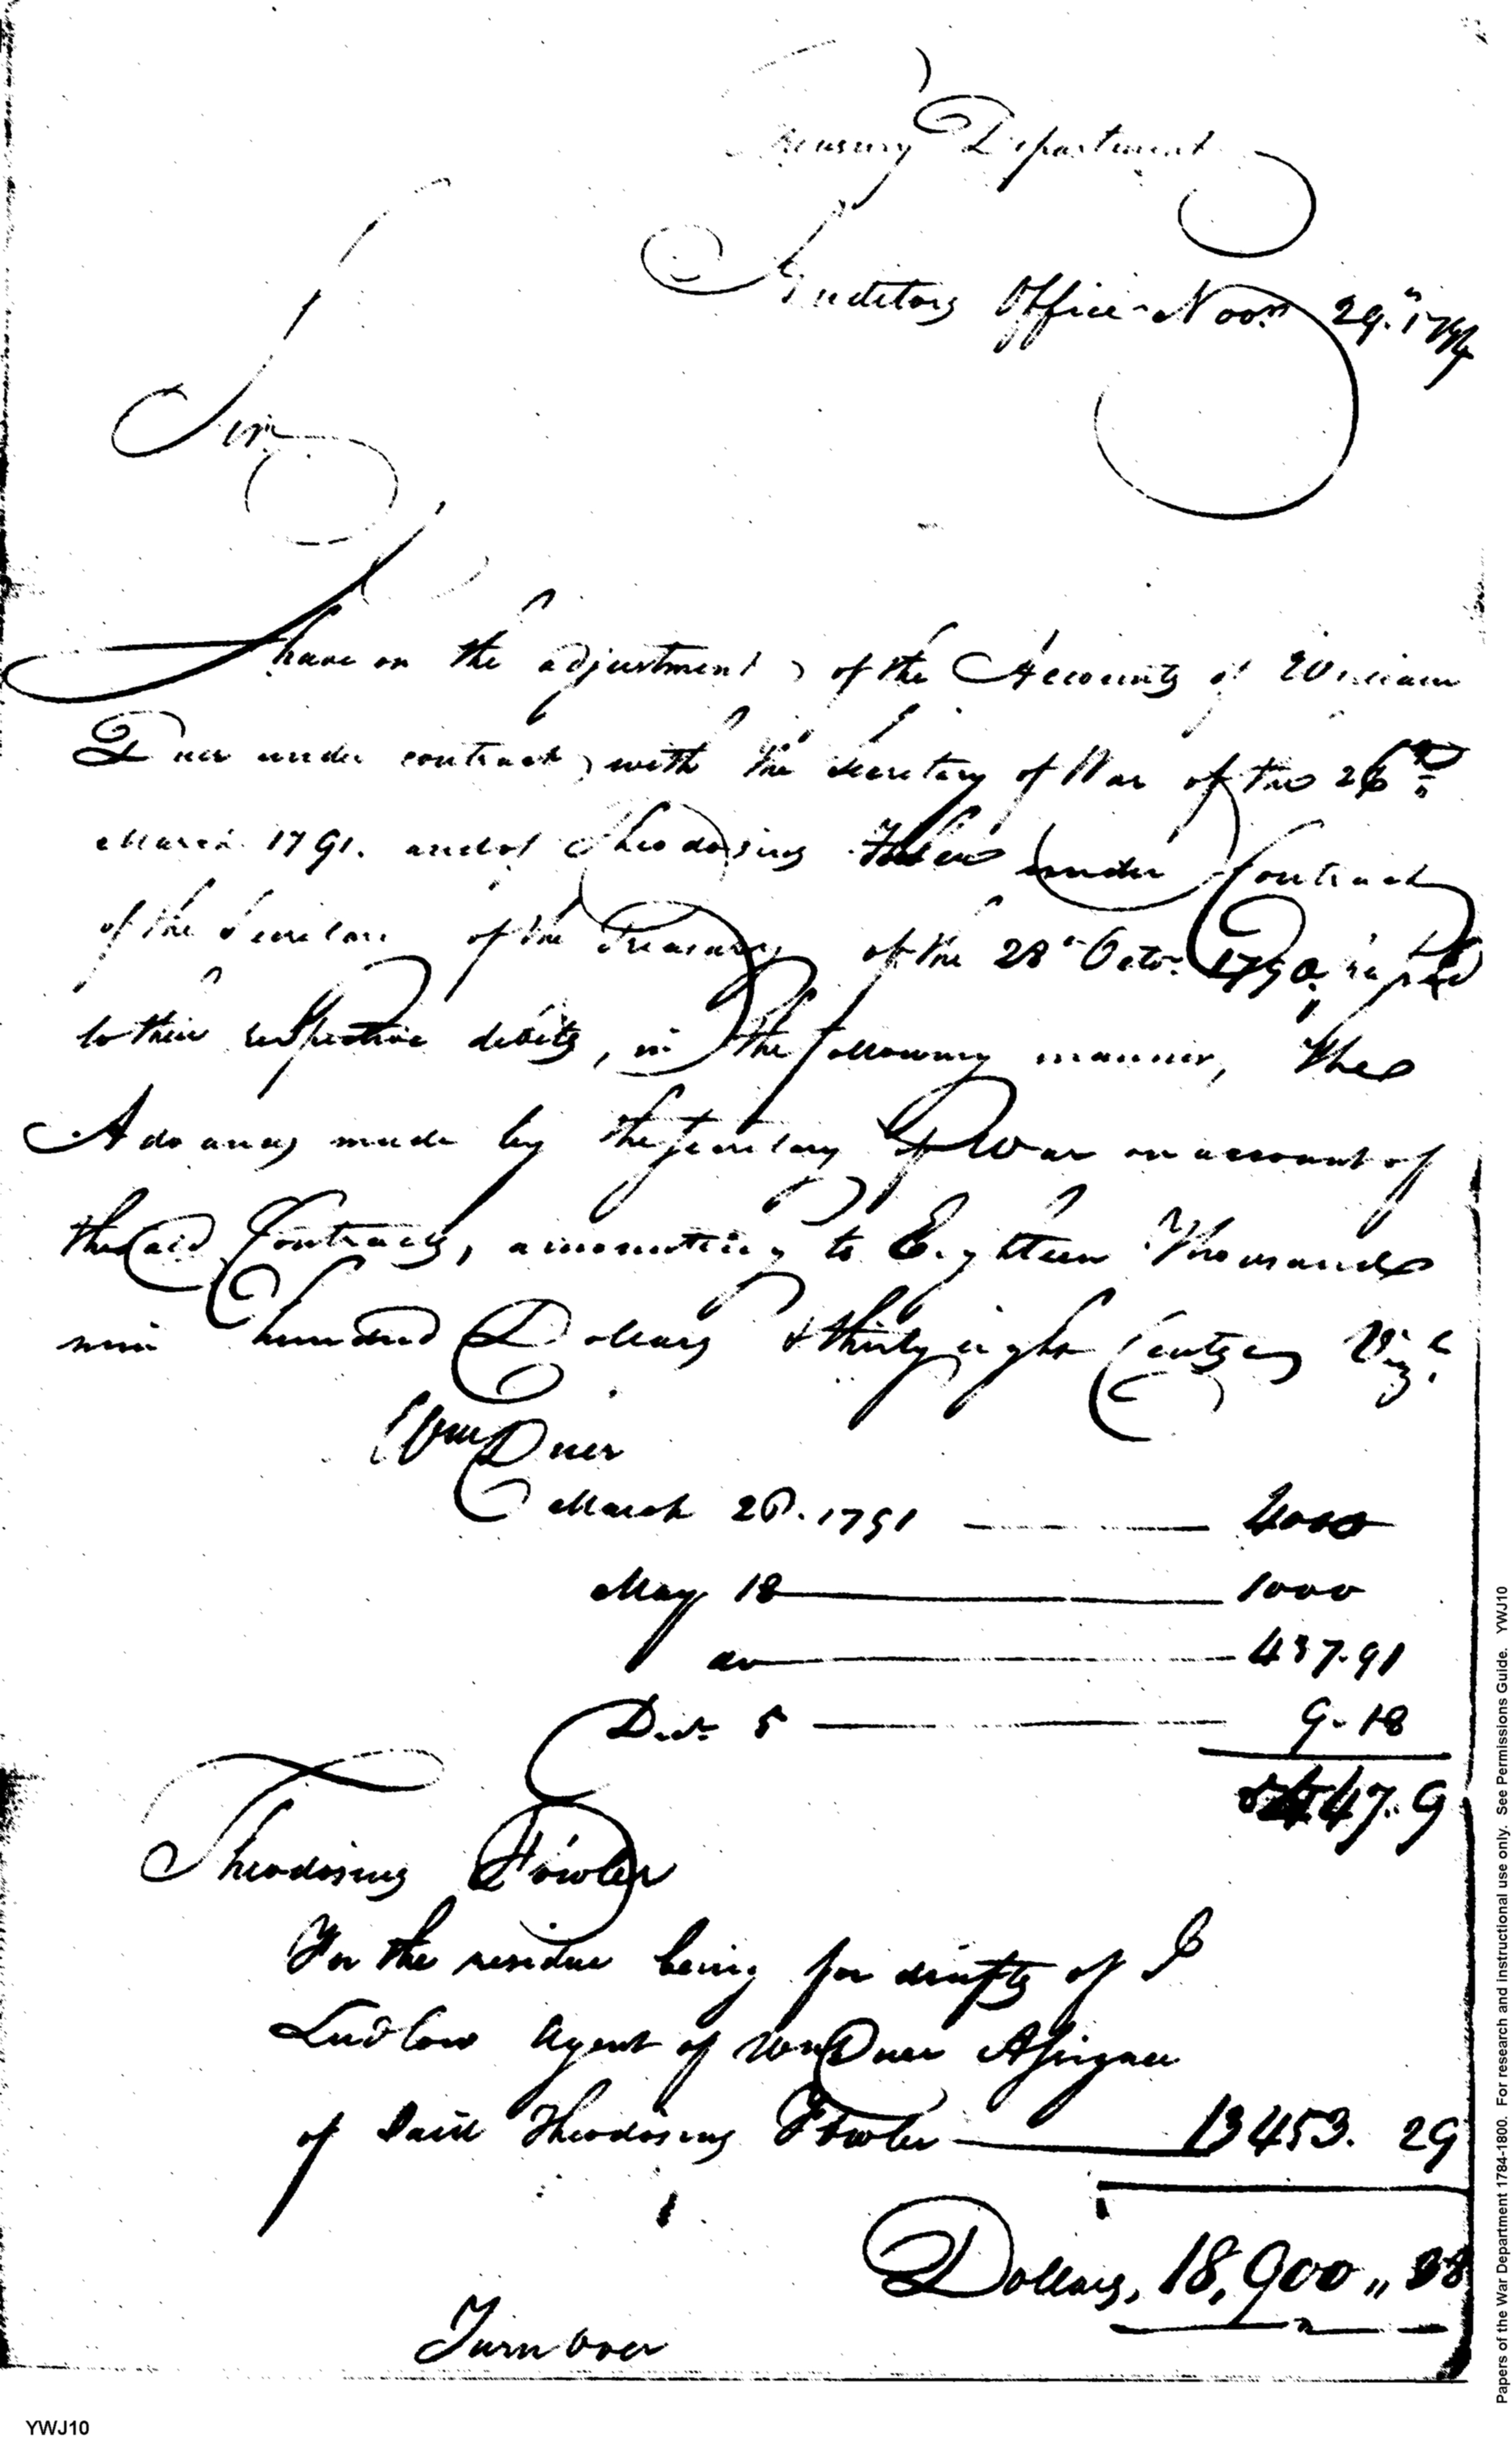 Treasury Department
Auditors Office Novr 29.th 1794
Sir
I have on the adjustment of the Accounts of William
Duer under contract with the Secretary of War of the 26th
March 1791. and of Theodosius Fowler under Contract
of the Secretary of the Treasury of the 28th Octor 1790,
to their respective debits, in the following manner, the
Advances made by the Secretary of War on account of
the said Contracts, amounting to Eighteen Thousand
nine hundred Dollars & thirty eight Cents Vizt
Wm Duer
March 28. 1791 4000
May 18 1000
do 437.91
Decr 5 9.18
5447.9
Theodosius Fowler
For the residue being for drafts of I
Ludlow Agent of Wm Duer Assignee
of said Theodosius Fowler 13453. 29
Dollars, 18,900,, 38
Turn over
YWJ10
Papers of the War Department 1784-1800. For research and instructional use only. See Permissions Guide. YWJ10